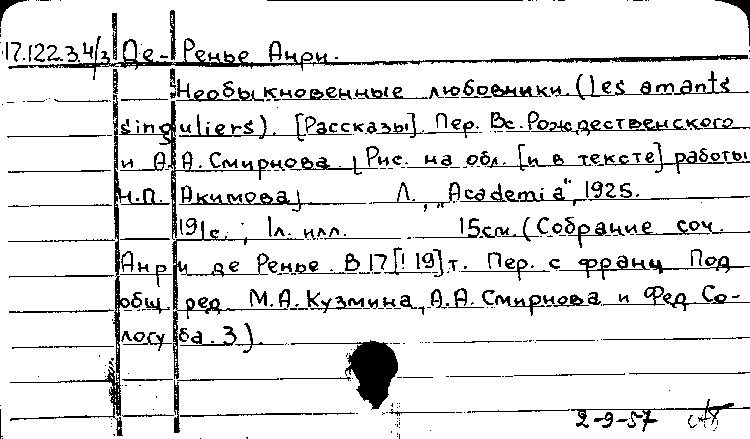 17.122.3.4/3 Де-Ренье Анри.
Необыкновенные любовники. (Les amants
singuliers). [Рассказы]. Пер. Вс. Рождественского
и А.А. Смирнова. [Рис. на обл. [и в тексте] работы
Н.П. Акимова]. Л., „Academia", 1925.
191с.; 1л. илл. 15см. (Собрание соч.
Анри де Ренье. В 17 [! 19] т. Пер. с франц Под
общ. ред. М.А. Кузмина, А.А. Смирнова и Фед Со-
логуба. 3).
2-9-57